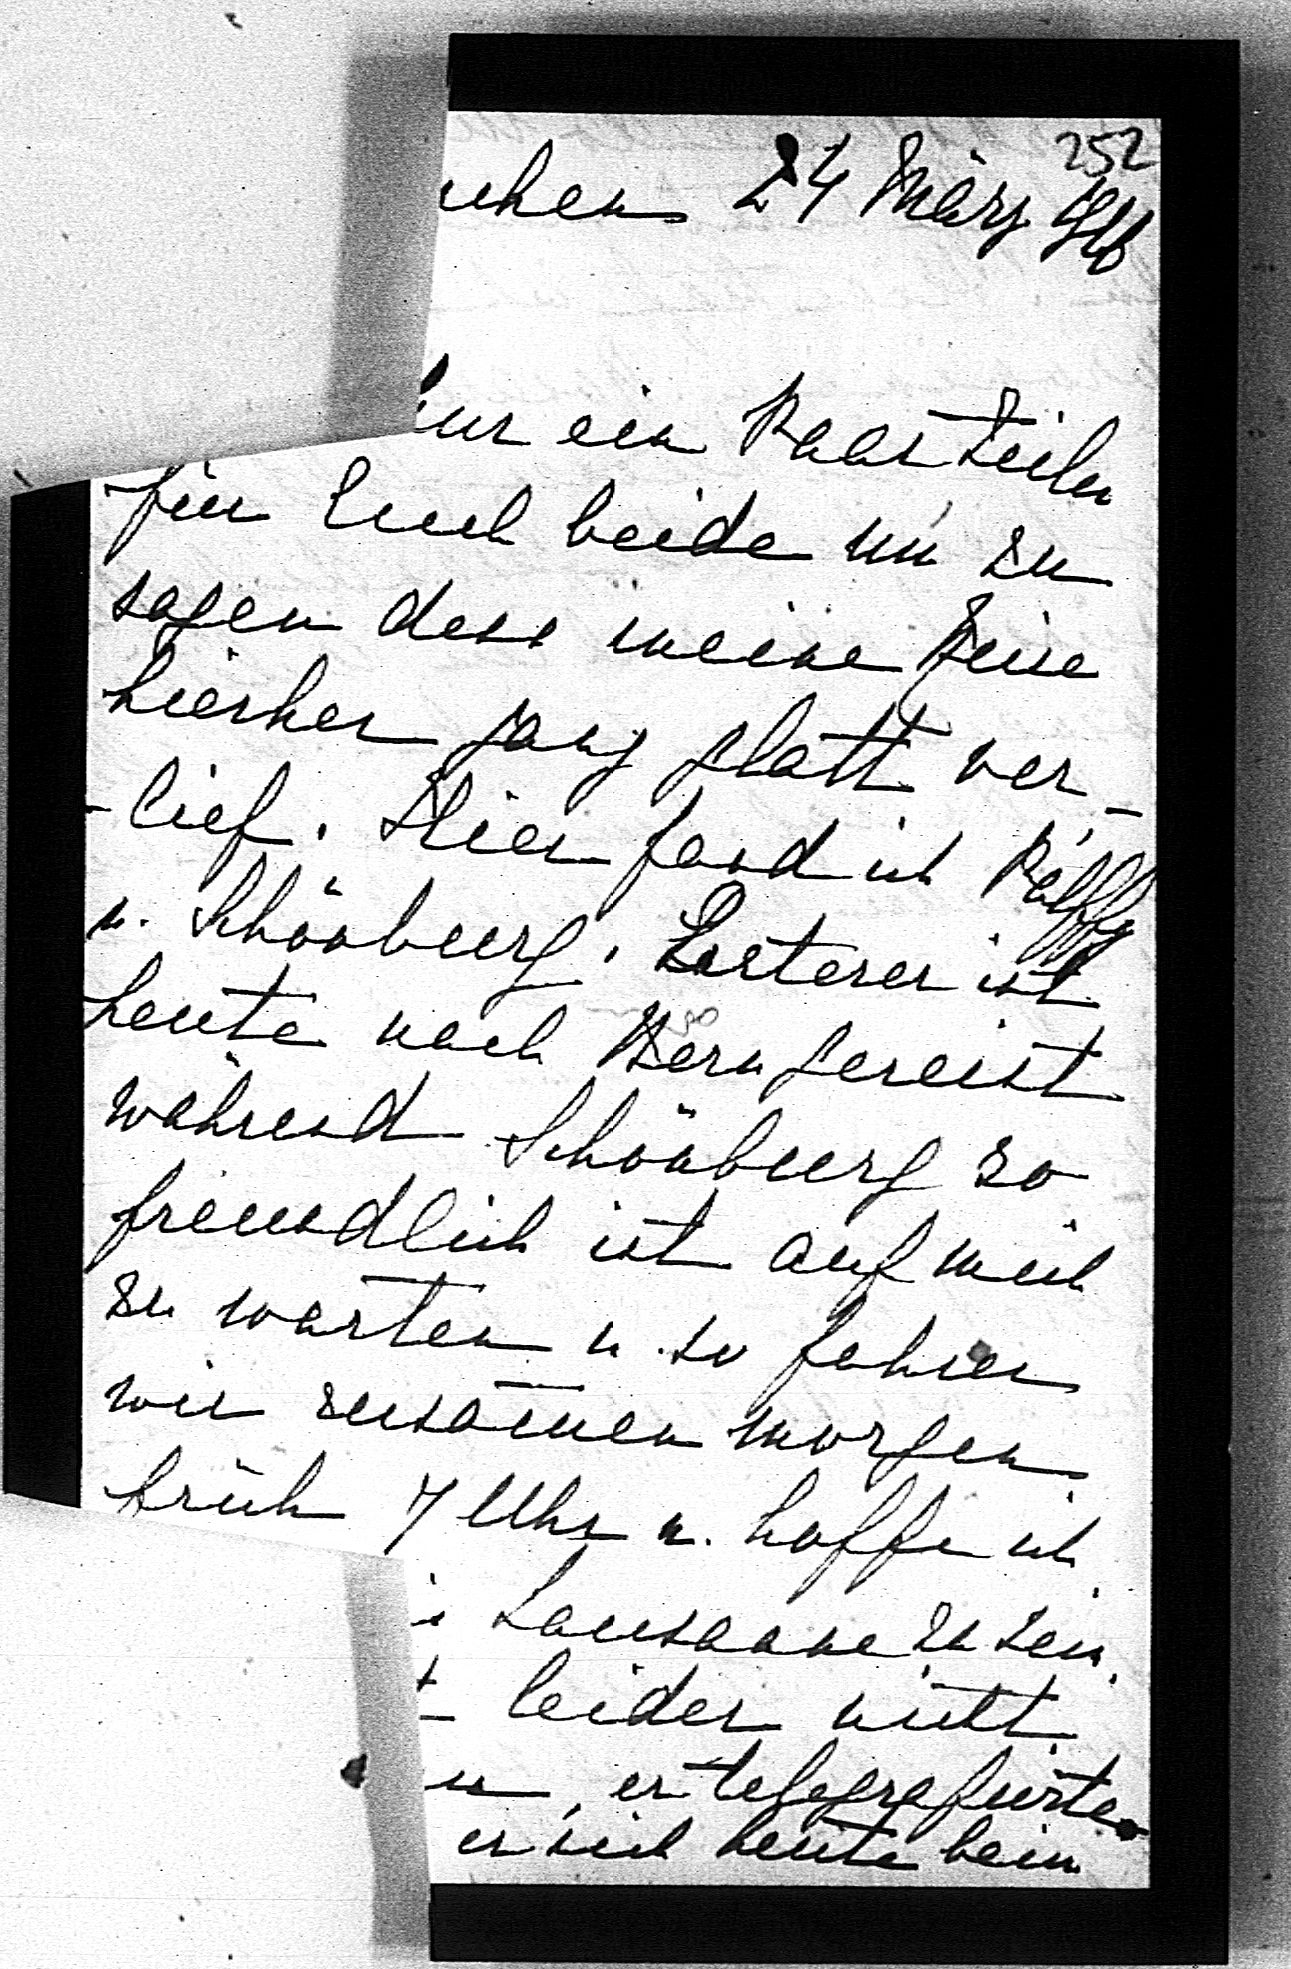 252
uchen 24 März 916
nur ein Paar Zeilen
für Euch beide um zu
sagen dass meine Reise
hierher ganz glatt ver-
-lief. Hier fand ich Pálffy
u. Schönburg. Ersterer ist
heute nach Bern gereist
während Schönburg so
freundlich ist auf mich
zu warten u. so fahren
wir zusamen morgen
früh 7 Uhr u. hoffe ich
i Lausanne zu sein.
t leider nicht
en, er telegrafierte
er sich heute beim